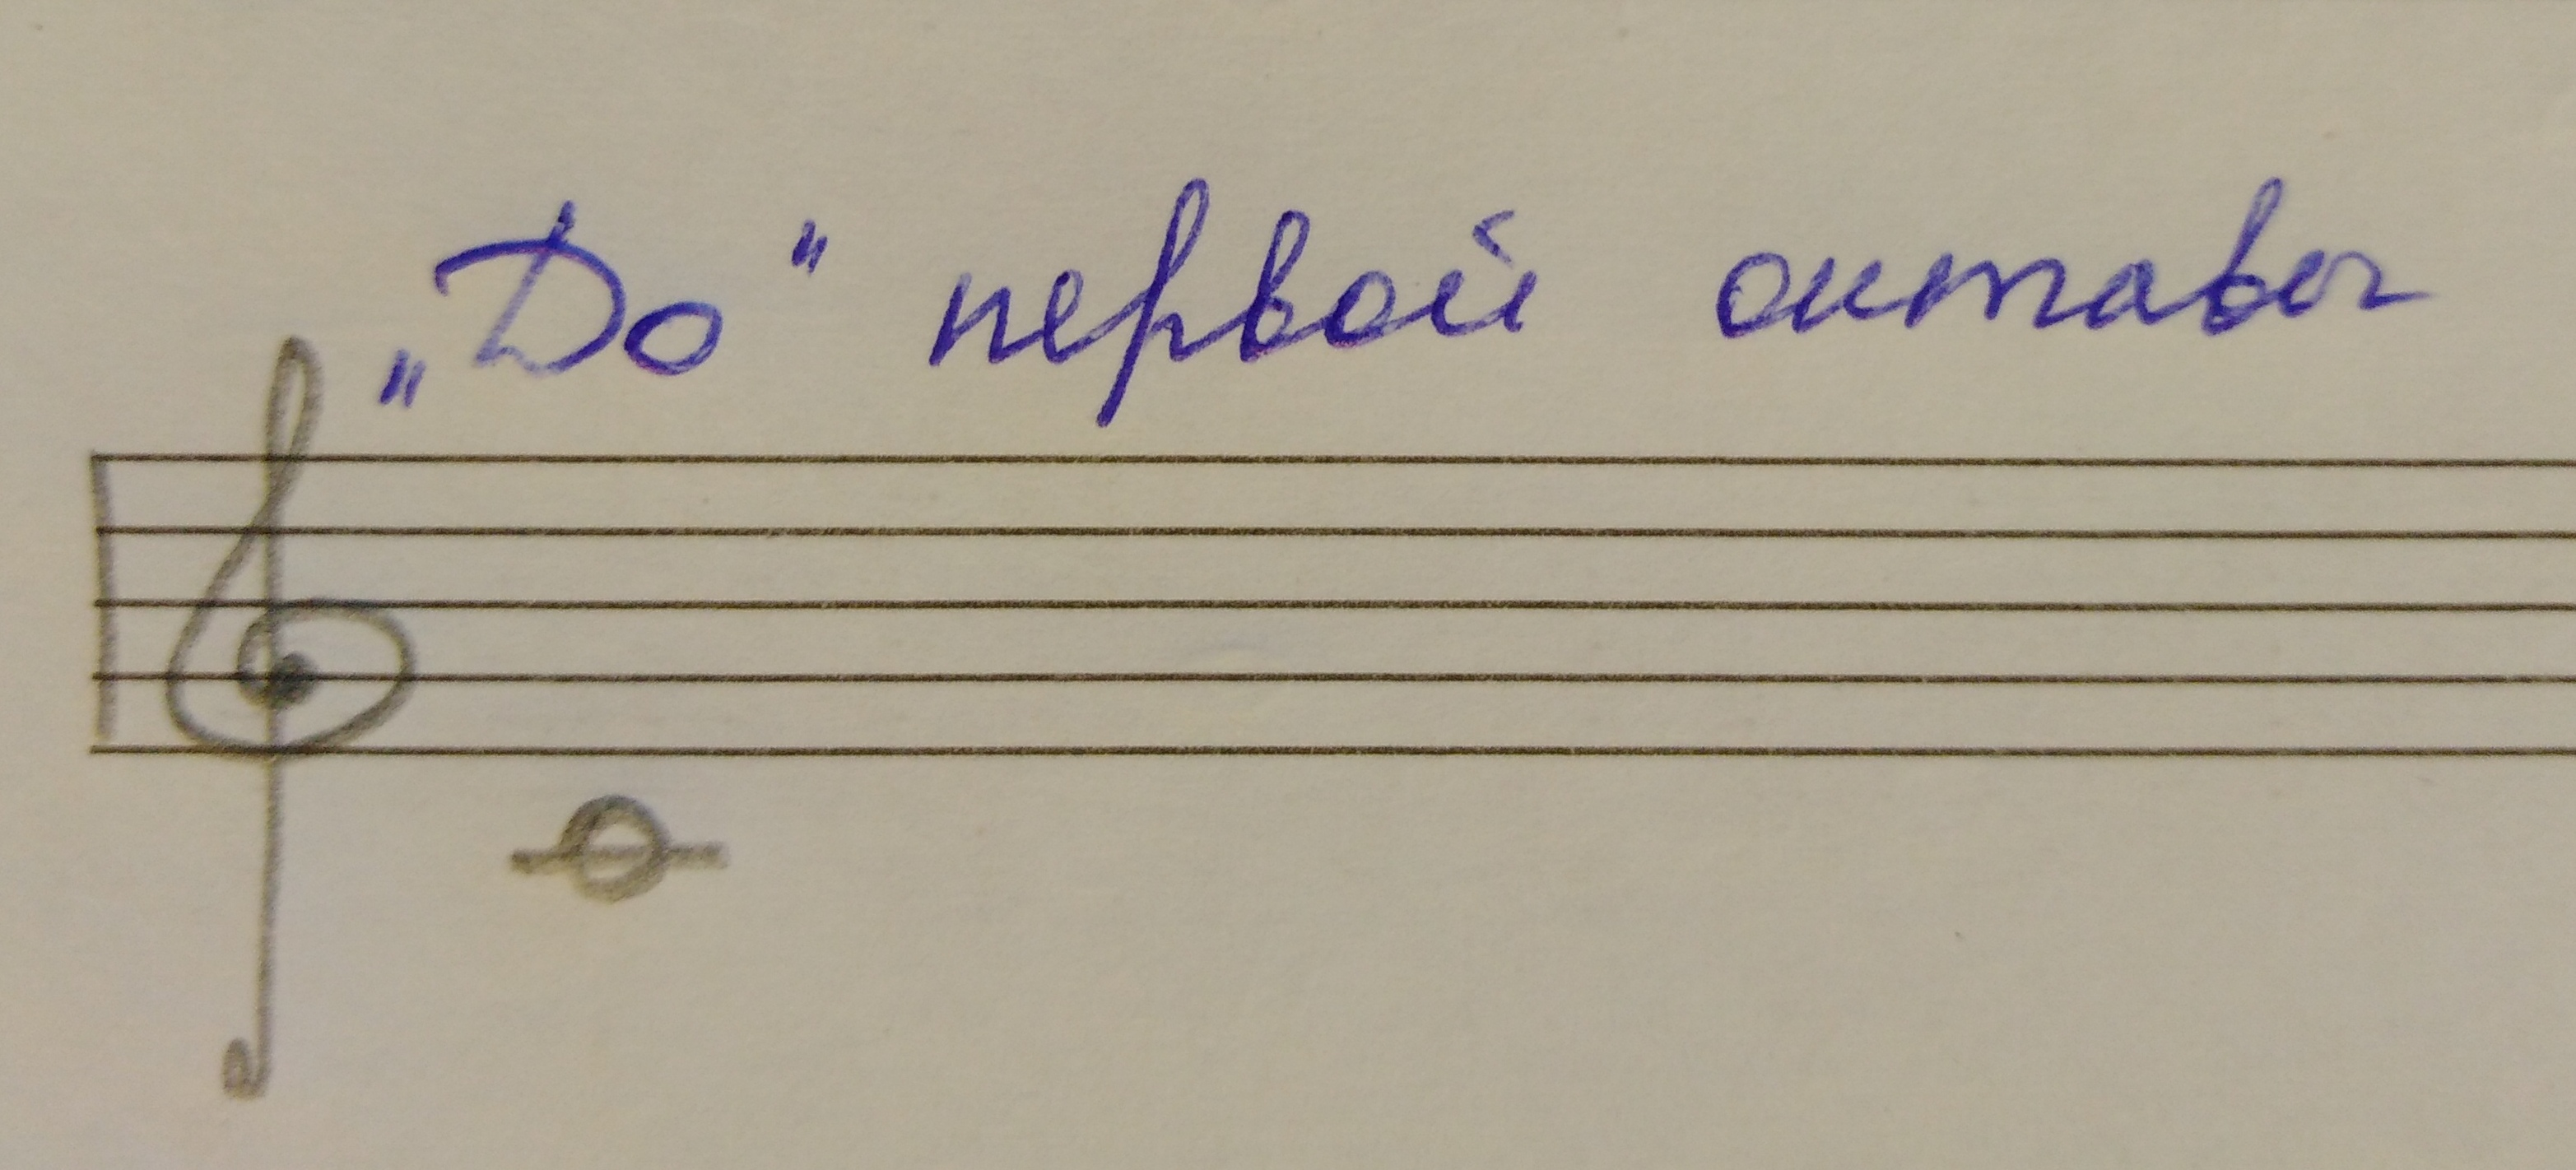 „До" первой октавы